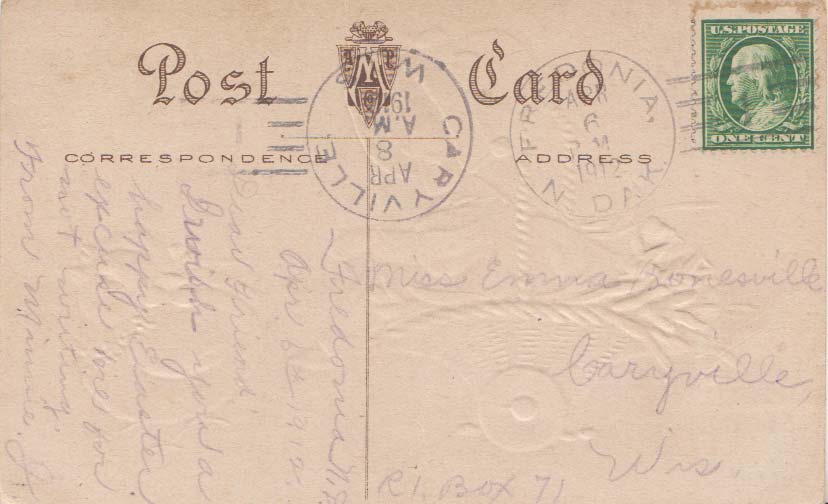 Post Card
U.S. POSTAGE
ONE CENT
FREDONIA,
N. DAK.
APR
6
1912
CARYVILLE
APR
8
A.M.
191
CORRESPONDENCE
ADDRESS
Fredonia N.D.
Apr. 6, 1912.
Dear Friend,
I wish you a
happy Easter
excuse me for
not writing.
From Minnie J.
Miss Emma Bonesville
Caryville,
Wis.
R1. Box 71